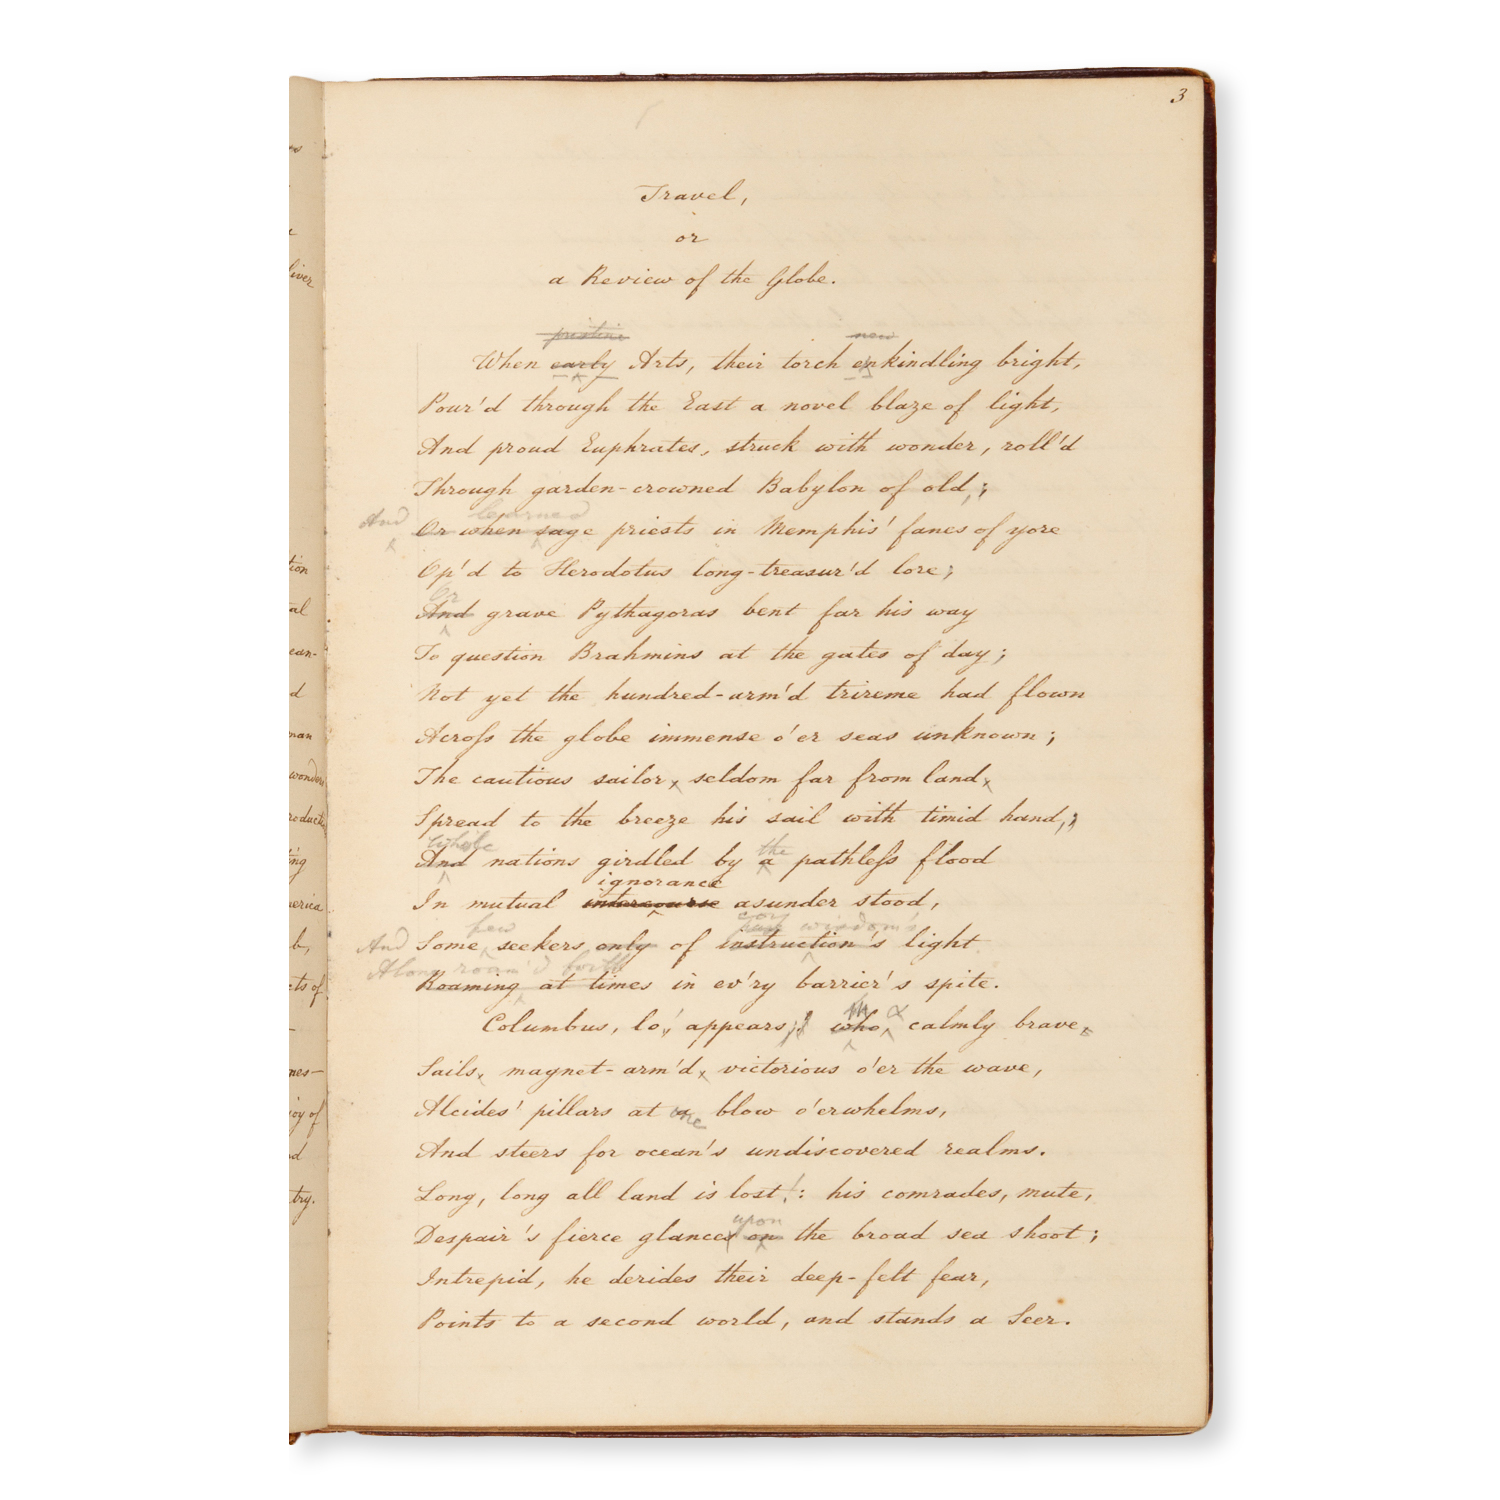 3
Travel,
or
a Review of the Globe.
pristine new
When early Arts, their torch enkindling bright,
Pour'd through the East a novel blaze of light,
And proud Euphrates, struck with wonder, roll'd
Through garden-crowned Babylon of old,;
And learned
Or when sage priests in Memphis' fanes of yore
Op'd to Herodotus long-treasur'd lore;
Or
And grave Pythagoras bent far his way
To question Brahmins at the gates of day;
Not yet the hundred-arm'd trireme had flown
Acroſs the globe immense o'er seas unknown;
The cautious sailor, seldom far from land,
Spread to the breeze his sail with timid hand,;
While the
And nations girdled by a pathleſs flood
ignorance
In mutual intercourse asunder stood,
few coy wisdom's
And Some seekers only of instruction's light
Along roam'd forth
Roaming at times in ev'ry barrier's spite.
Columbus, lo! appears; who, calmly brave,
Sails, magnet-arm'd, victorious o'er the wave,
Alcides' pillars at a one blow o'erwhelms,
And steers for ocean's undiscovered realms.
Long, long all land is lost!: his comrades, mute,
upon
Despair's fierce glances on the broad sea shoot;
Intrepid, he derides their deep-felt fear,
Points to a second world, and stands a Seer.
liver
tion
al
ean-
d
man
wonders
roducti
ing
merica
b,
cts of
nes—
joy of
d
try.